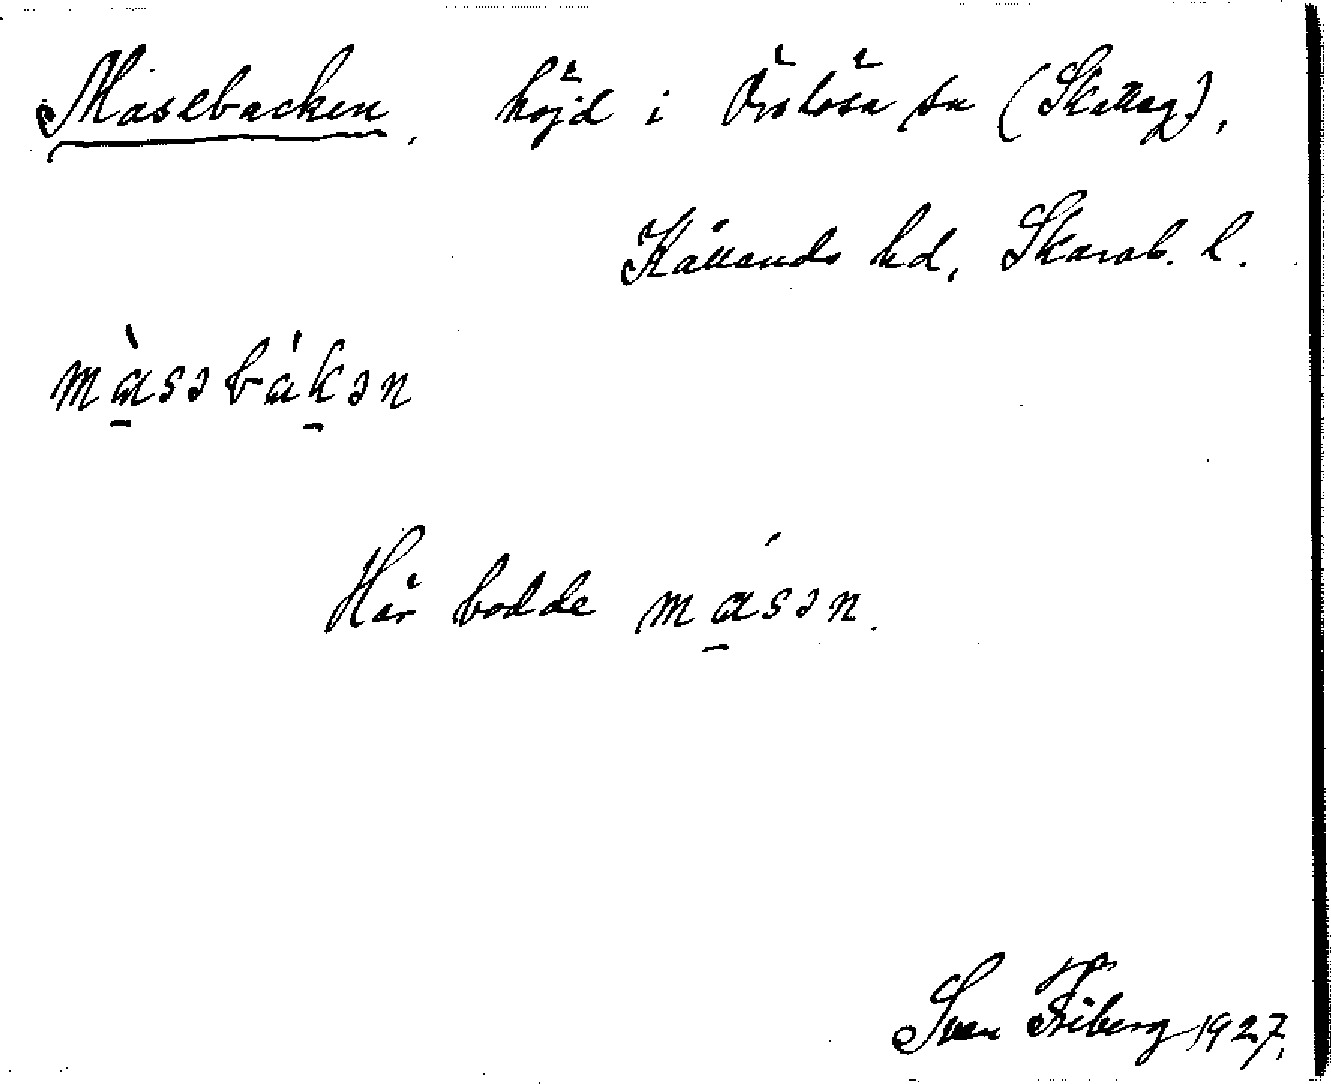 Masebacken, höjd i Örslösa sn (Skatteg),
Kållands hd, Skarab. l.
màsəbákən
Här bodde másən.
Sven Friberg 1927.